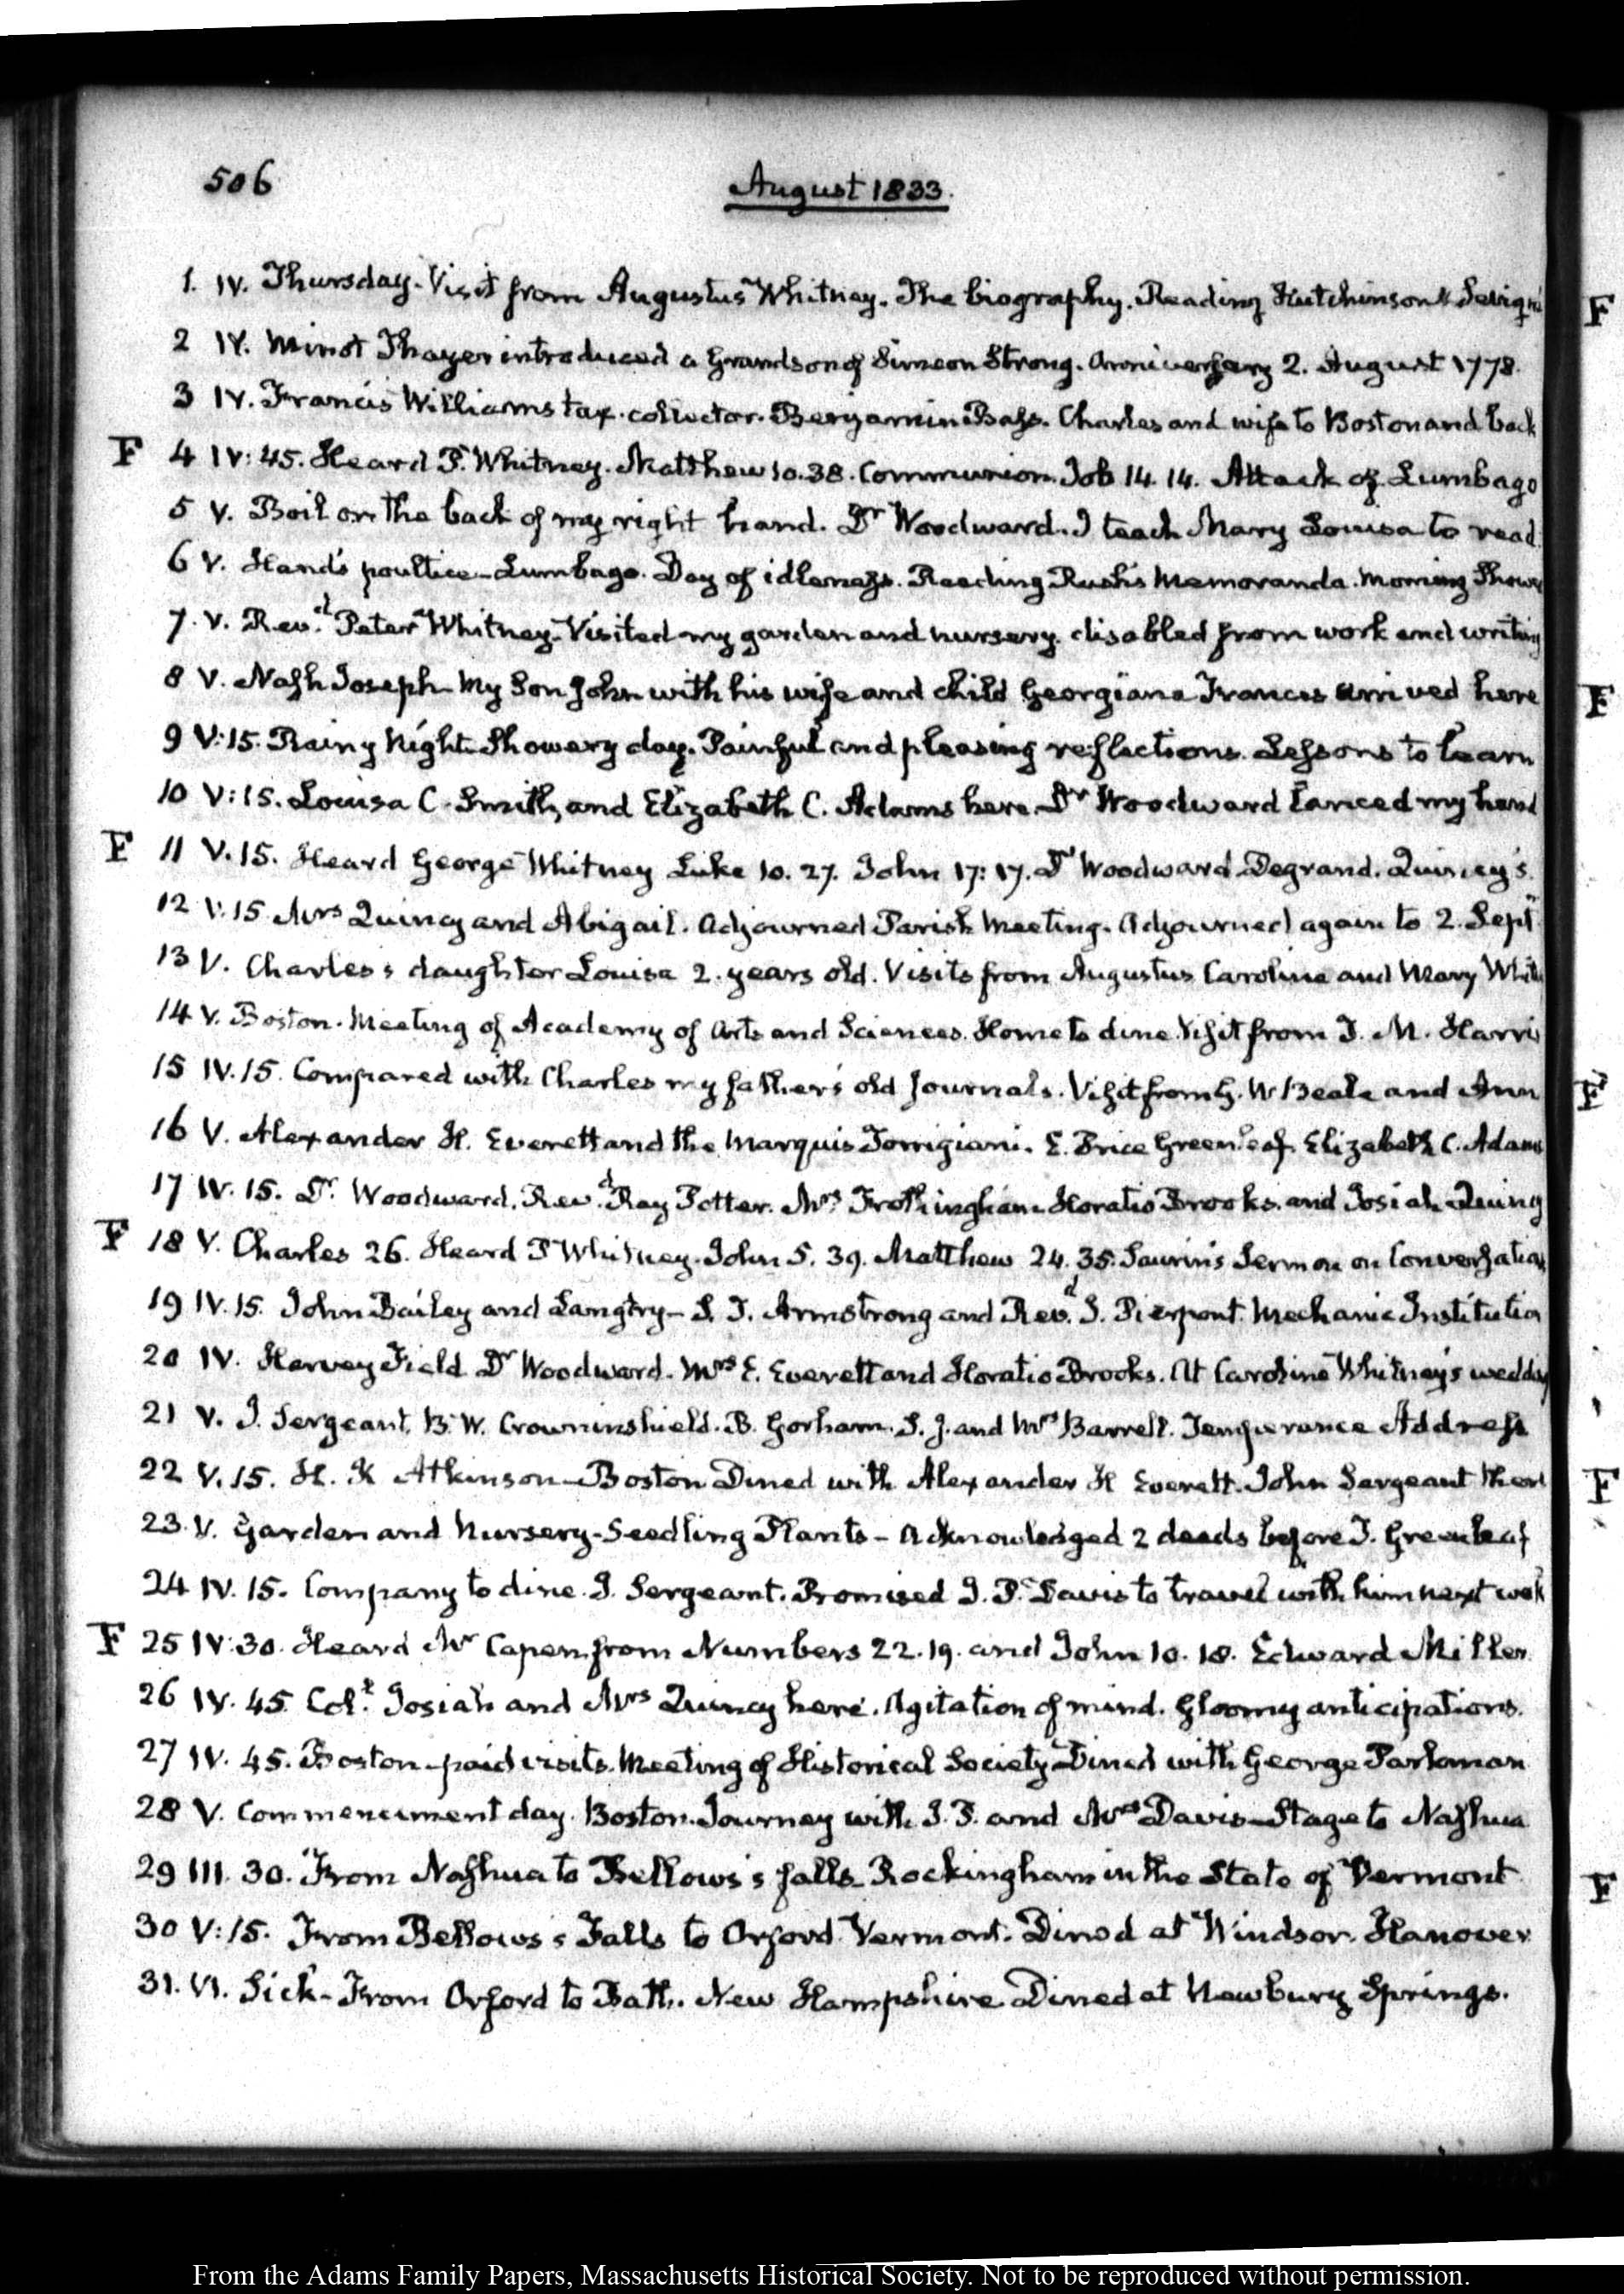 506
August 1833.
1. IV. Thursday. Visit from Augustus Whitney. The biography. Reading Hutchinson &
2 IV. Minot Thayer introduced a Grandson of Simeon Strong. Anniversary 2. August 1778.
3 IV. Francis Williams tax. collector. Benjamin Bass. Charles and wife to Boston and back
F 4 IV:45. Heard P. Whitney. Matthew 10.38. Communion. Job 14.14. Attack of Lumbago
5 V. Boil on the back of my right hand. Dr Woodward. I teach Mary Louisa to read
6 V. Hand's poultice – Lumbago. Day of idleness. Reading Rush's Memoranda. Morning Shower
7. V. Revd. Peter Whitney. Visited my garden and nursery. disabled from work and writing
8 V. Nash Joseph – My Son John with his wife and child Georgiana Frances arrived here
9 V:15. Rainy Night. Showery day. Painful and pleasing reflections. Lessons to learn
10 V:15. Louisa C. Smith, and Elizabeth C. Adams here. Dr Woodward lanced my hand
F 11 V.15. Heard George Whitney Luke 10. 27. John 17:17. Dr Woodward. Degrand. Quincy's.
12 V.15 Mrs Quincy and Abigail. Adjourned Parish Meeting. Adjourned again to 2. Sept
13 V. Charles's daughter Louisa 2. years old. Visits from Augustus Caroline and Mary
14 V. Boston. Meeting of Academy of Arts and Sciences. Home to dine. Visit from T. M. Harris
15 IV.15. Compared with Charles my father's old Journals. Visit from G. W Beale and Ann
16 V. Alexander H. Everett and the Marquis Torrigiani. E. Price Greenleaf. Elizabeth C. Adams
17 IV. 15. Dr. Woodward. Revd. Ray Potter. Mrs Frothingham. Horatio Brooks. and Josiah Quincy
F 18 V. Charles 26. Heard P Whitney. John 5. 39. Matthew 24. 35. Saurin's Sermon on Conversation
19 IV.15. John Bailey and Langtry – S. T. Armstrong and Revd. J. Pierpont. Mechanic Institution
20 IV. Harvey Field. Dr Woodward. Mrs E. Everett and Horatio Brooks. At Caroline Whitney's wedding
21 V. J. Sergeant. B. W. Crowninshield. B. Gorham. S. J. and Mrs Barrell. Temperance Address
22 V.15. H. K Atkinson – Boston Dined with Alexander H Everett. John Sergeant there
23. V. Garden and Nursery – Seedling Plants – Acknowledged 2 deeds before T. Greenleaf
24 IV. 15. Company to dine. J. Sergeant. Promised I. P. Davis to travel with him next week
F 25 IV:30. Heard Mr Capen from Numbers 22.19. and John 10. 18. Edward Miller.
26 IV. 45. Josiah and Mrs Quincy here. Agitation of mind. Gloomy anticipations.
27 IV. 45. Boston – paid visits. Meeting of Historical Society – Dined with George Parkman
28 V. Commencement day. Boston. Journey with I. P. and Mrs Davis – Stage to Nashua
29 III. 30. From Nashua to Bellows's falls. Rockingham in the State of Vermont
30 V:15. From Bellows's Falls to Orford Vermont. Dined at Windsor. Hanover
31. VI. Sick – From Orford to Bath. New Hampshire. Dined at Newbury Springs.
F
F
F
F
F
From the Adams Family Papers, Massachusetts Historical Society. Not to be reproduced without permission.